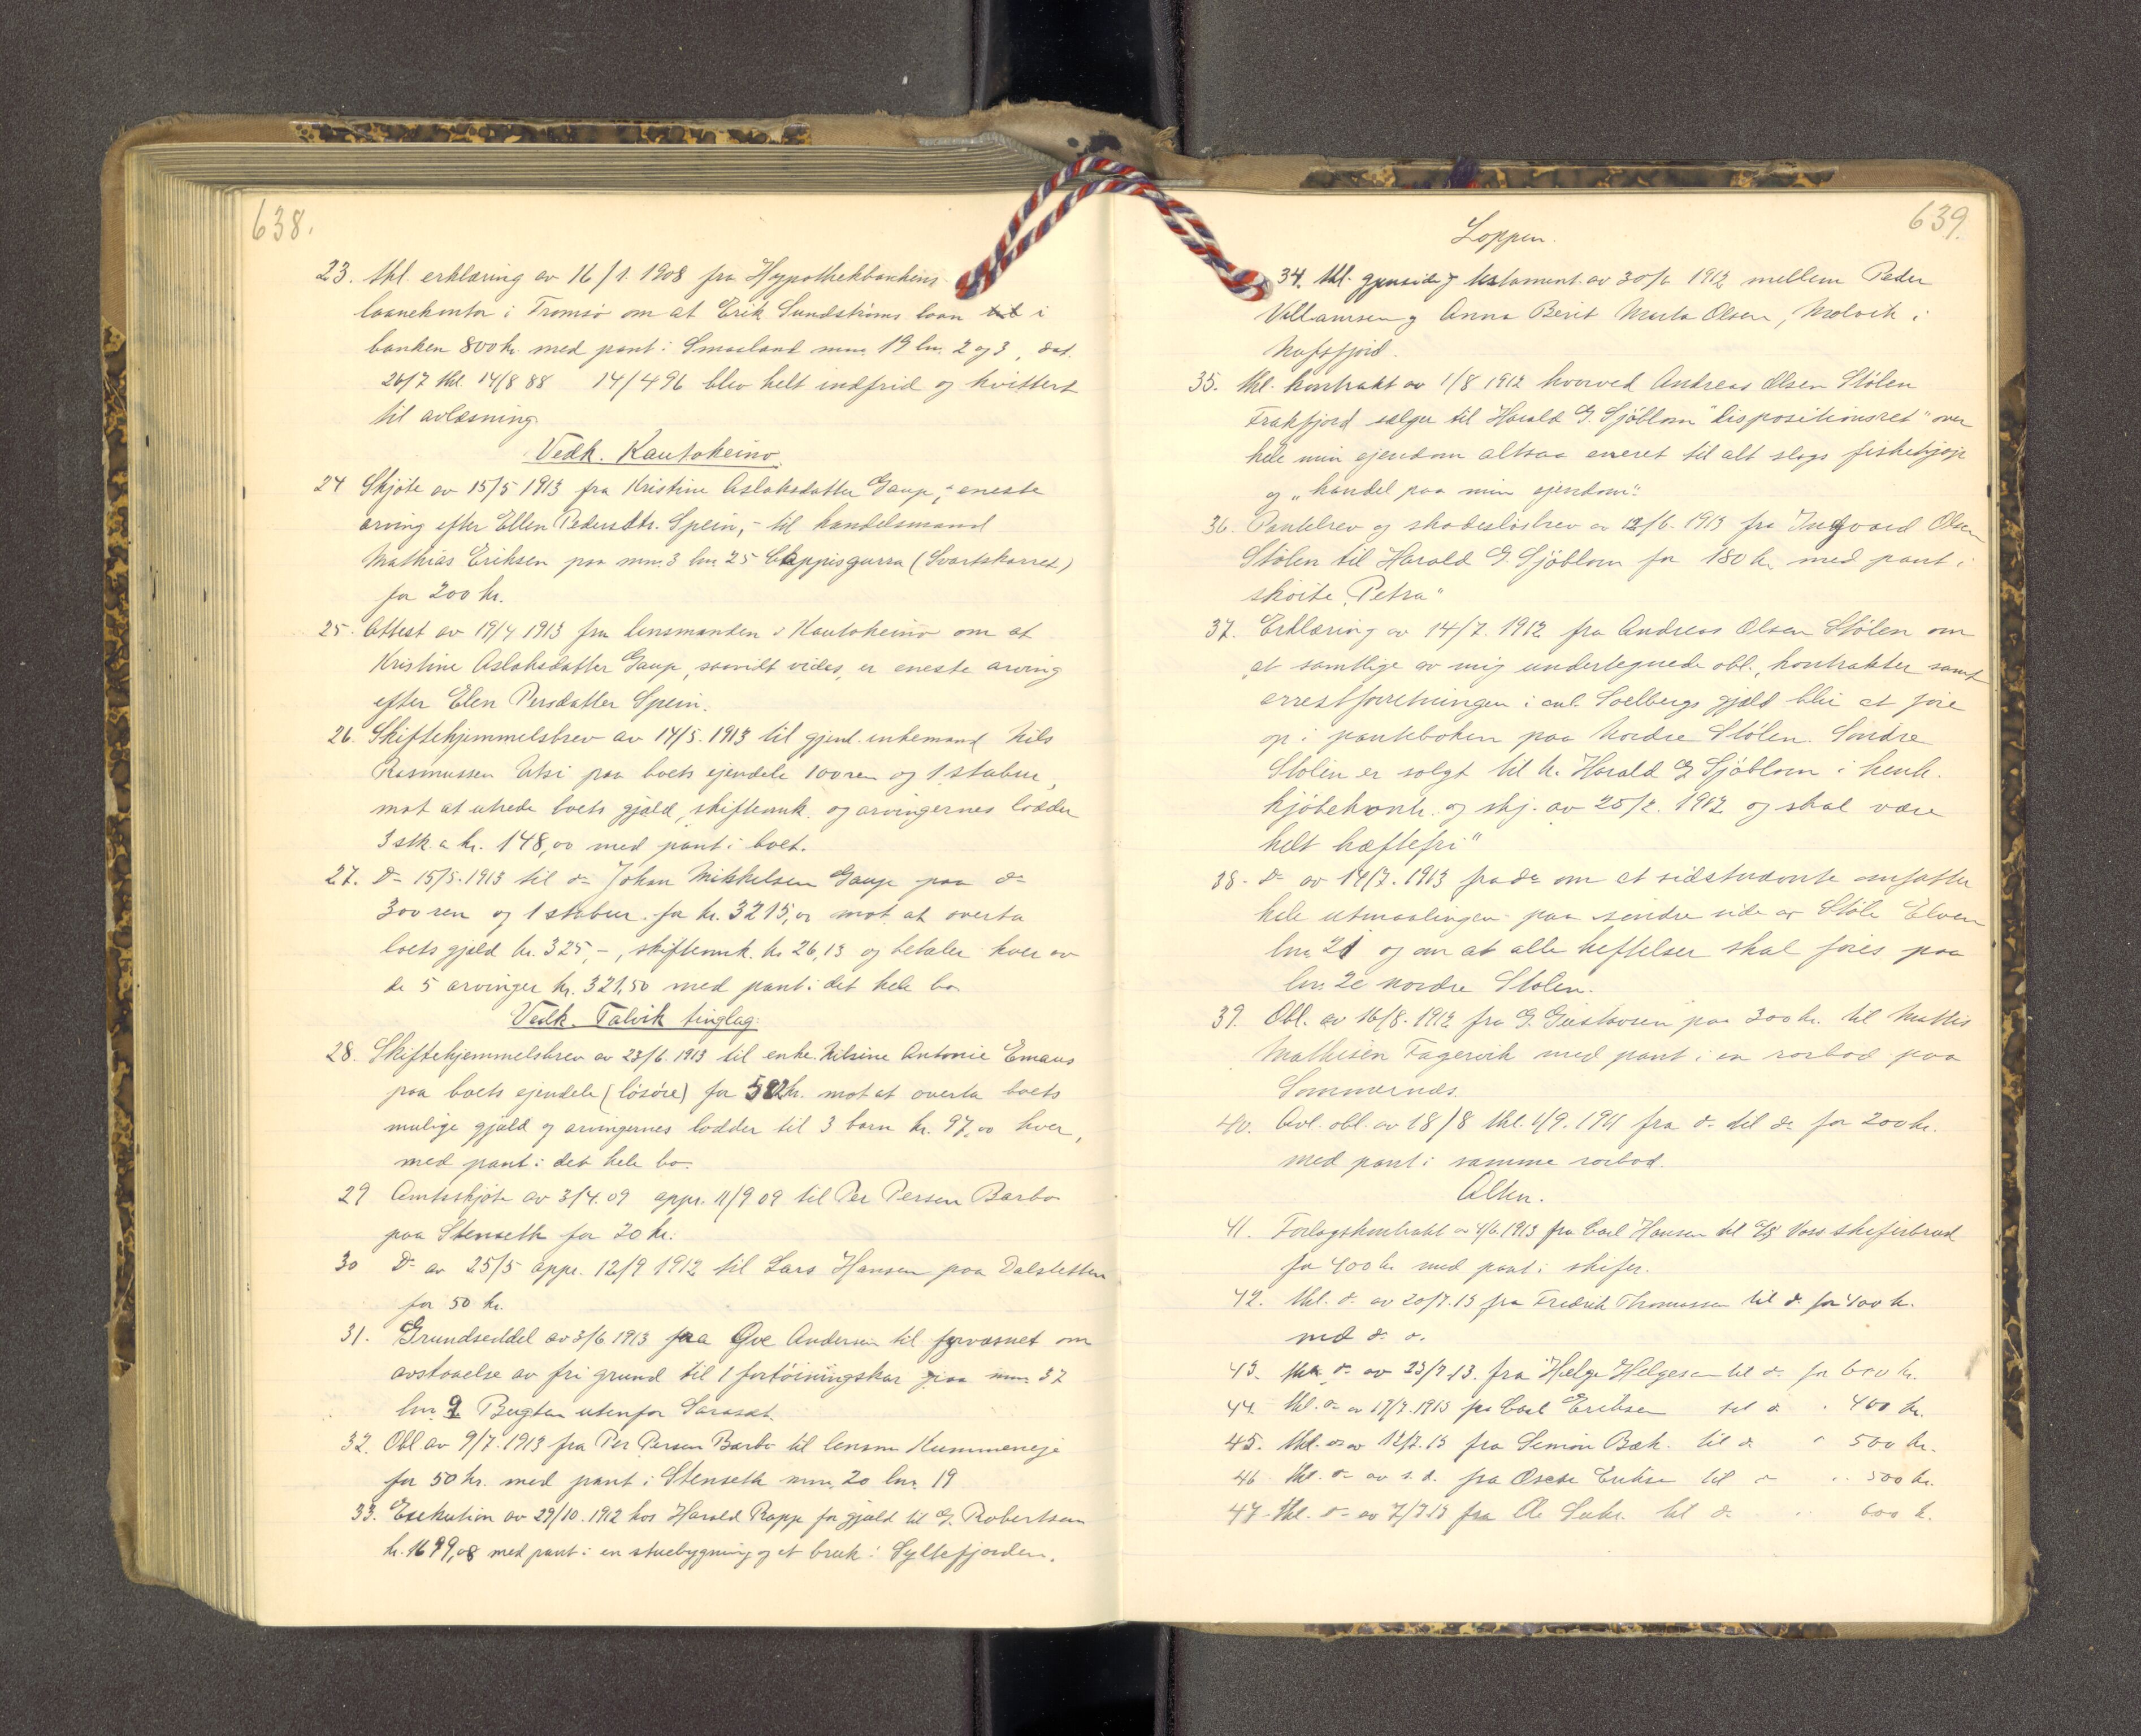 638.
23. thl. erklæring av 16/1. 1908 fra Hypothekbankens
laanekontor i Tromsø om at Erik Sundströms laan i
banken 800 kr. med pant i Smaaland mnr. 19 lnr. 2 og 3, dat.
26/7 thl. 14/8 88 14/496 blev helt indfrid og kvittert
til avlæsning
Vedk. Kautokeino.
24 Skjöte av 15/5 1913 fra Kristine Aslaksdatter Gaup, - eneste
arving efter Ellen Pedersdtr. Spein, - til handelsmand
Mathias Eriksen paa mnr. 3 lnr 25 Čappisgurra (Svartskarret)
for 200 kr.
25. Attest av 19/4 1913 fra lensmanden i Kautokeino om at
Kristine Aslaksdatter Gaup, saavidt vides, er eneste arving
efter Elen Persdatter Spein.
26. Skiftehjemmelsbrev av 14/5. 1913 til gjenl. enkemand Nils
Rasmussen Utsi paa boets ejendele 100 ren og 1 stabur,
mot at utrede boets gjæld, skifteomk. og arvingernes lodder
3 stk. a kr. 148,00 med pant i boet.
27. Do 15/5. 1913 til do Johan Mikkelsen Gaup paa do
300 ren og 1 stabur for kr. 3215,00 mot at overta
boets gjæld kr. 325,-, skifteomk. kr 26,13 og betaler hver av
de 5 arvinger kr. 321,50 med pant i det hele bo
Vedk. Talvik tinglag.
28. Skiftehjemmelsbrev av 23/6. 1913 til enke Nilsine Antonie Emaus
paa boets ejendele (lösöre) for 582 kr. mot at overta boets
mulige gjæld og arvingernes lodder til 3 barn kr. 97,00 hver,
med pant i det hele bo.
29 Amtsskjöte av 3/4. 09 appr. 11/9 09 til Per Persen Barbo
paa Stenseth for 20 kr.
30 Do av 25/5 appr. 12/9 1912 til Lars Hansen paa Dalsletten
for 50 kr.
31. Grundseddel av 3/6 1913 fra Ove Andersen til fyrvæsnet om
avstaaelse av fri grund til 1 fortöiningskar paa mnr. 37
lnr. 9 Bugten utenfor
32. Obl av 9/7. 1913 fra Per Persen Barbo til lensm Kummeneje
for 50 kr. med pant i Stenseth mnr. 20 lnr. 19
33. Exekution av 29/10. 1912 hos Harald Rapp for gjæld til G. Robertsen
kr. 1699,08 med pant i en stuebygning og et bruk i Syltefjorden.
639.
Loppen.
34. thl. gjensidig testament av 30/6 1912 mellem Peder
Villamsen og Anna Berit Marta Olsen, Molvik i
Nufsfjord.
35. thl. kontrakt av 1/8 1912 hvorved Andreas Olsen Stölen
Frakfjord sælger til Harald G. Sjöblom "dispositionsret" over
hele min ejendom altsaa eneret til alt slags fiskekjöp
og "handel paa min ejendom".
36. Pantebrev og skadeslösbrev av 12/6. 1913 fra Ingvard Olsen
Stölen til Harald G. Sjöblom for 180 kr. med pant i
sköite "Petra"
37. Erklæring av 14/7. 1912 fra Andreas Olsen Stölen om
at samtlige av mig undertegnede obl., kontrakter samt
arrestforretningen i anl. Soelbergs gjæld blir at före
op i panteboken paa Nordre Stölen. Söndre
Stölen er solgt til hr. Harald G Sjöblom i henh.
kjöbekontr. og skj. av 25/2. 1912 og skal være
helt hæftefri"
38. Do av 14/7. 1913 fra do om at sidstnævnte omfatter
hele utmaalingen paa söndre side av Stöle Elven
lnr 21 og om at alle heftelser skal föies paa
lnr. 20 nordre Stölen.
39. Obl. av 16/8. 1912 fra G. Gustavsen paa 300 kr. til Mattis
Mathisen Fagervik med pant i en rorbod paa
Sommernæs.
40. Avl. obl. av 18/8 thl. 1/9. 1911 fra do til do for 200 kr.
med pant i samme rorbod.
Alten.
41. Forlagskontrakt av 4/6. 1913 fra Carl Hansen til A/S Voss skiferbrud
for 400 kr med pant i skifer.
42. thl. do av 20/7. 13 fra Fredrik Thomassen til do for 400 kr.
med do o.
43. thl. do av 23/7. 13. fra Helge Helgesen til do for 600 kr.
44. thl. do av 17/7. 1913 fra Carl Eriksen til do " 400 kr.
45. thl. do av 12/7. 13 fra Simon Bæk. til do " 500 kr.
46 thl. do av s. d. fra Oscar Eriksen til do " 500 kr.
47. thl. do av 7/7 13 fra Ole Suhr. til do " 600 k.